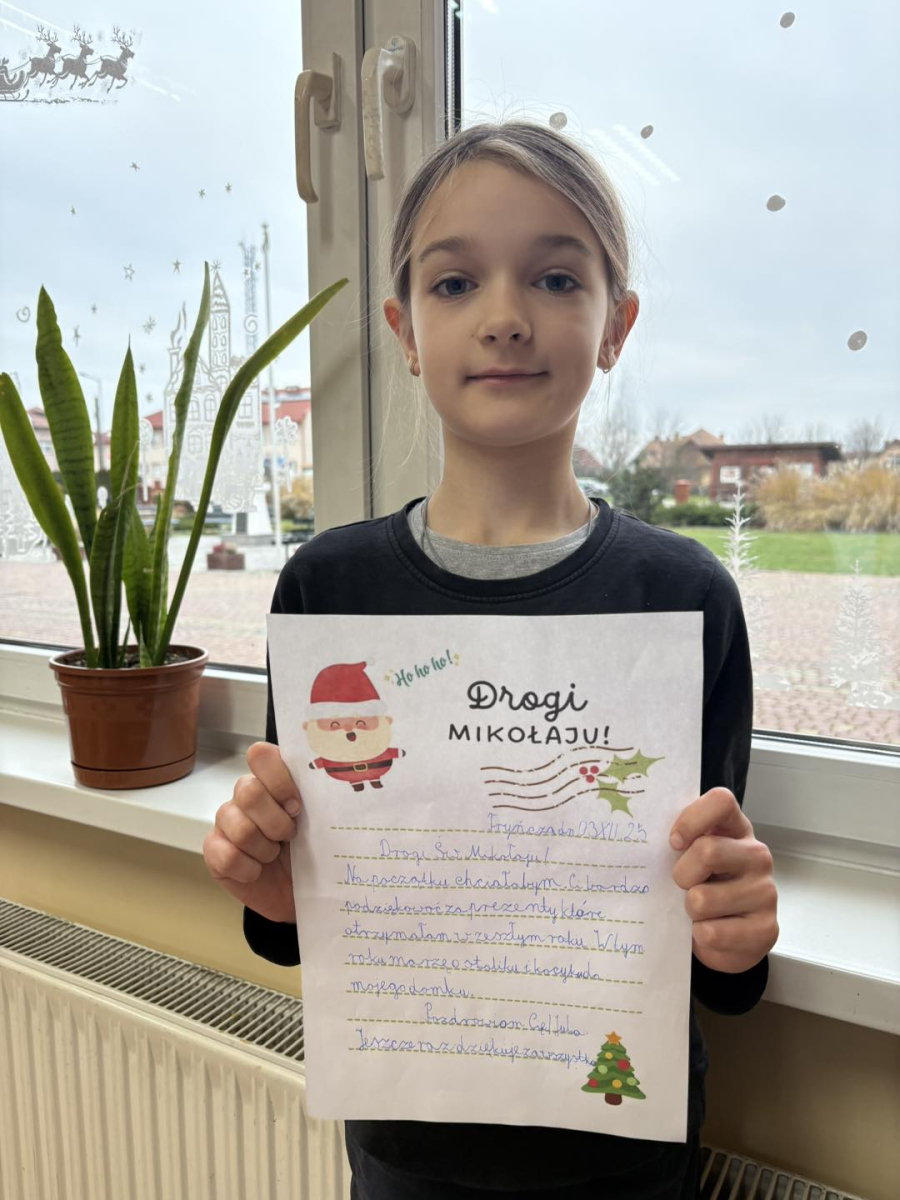 Ho ho ho!
Drogi
MIKOŁAJU!
Tryńcza dn 03 XII. 25
Drogi Św Mikołaju!
Na początku chciałabym Ci bardzo
podziękować za prezenty które
otrzymałam w zeszłym roku. W tym
roku marzę o stoliku i kosyku do
mojego domku.
Pozdrawiam Cię!
Jeszcze raz dziękuje za wszystko